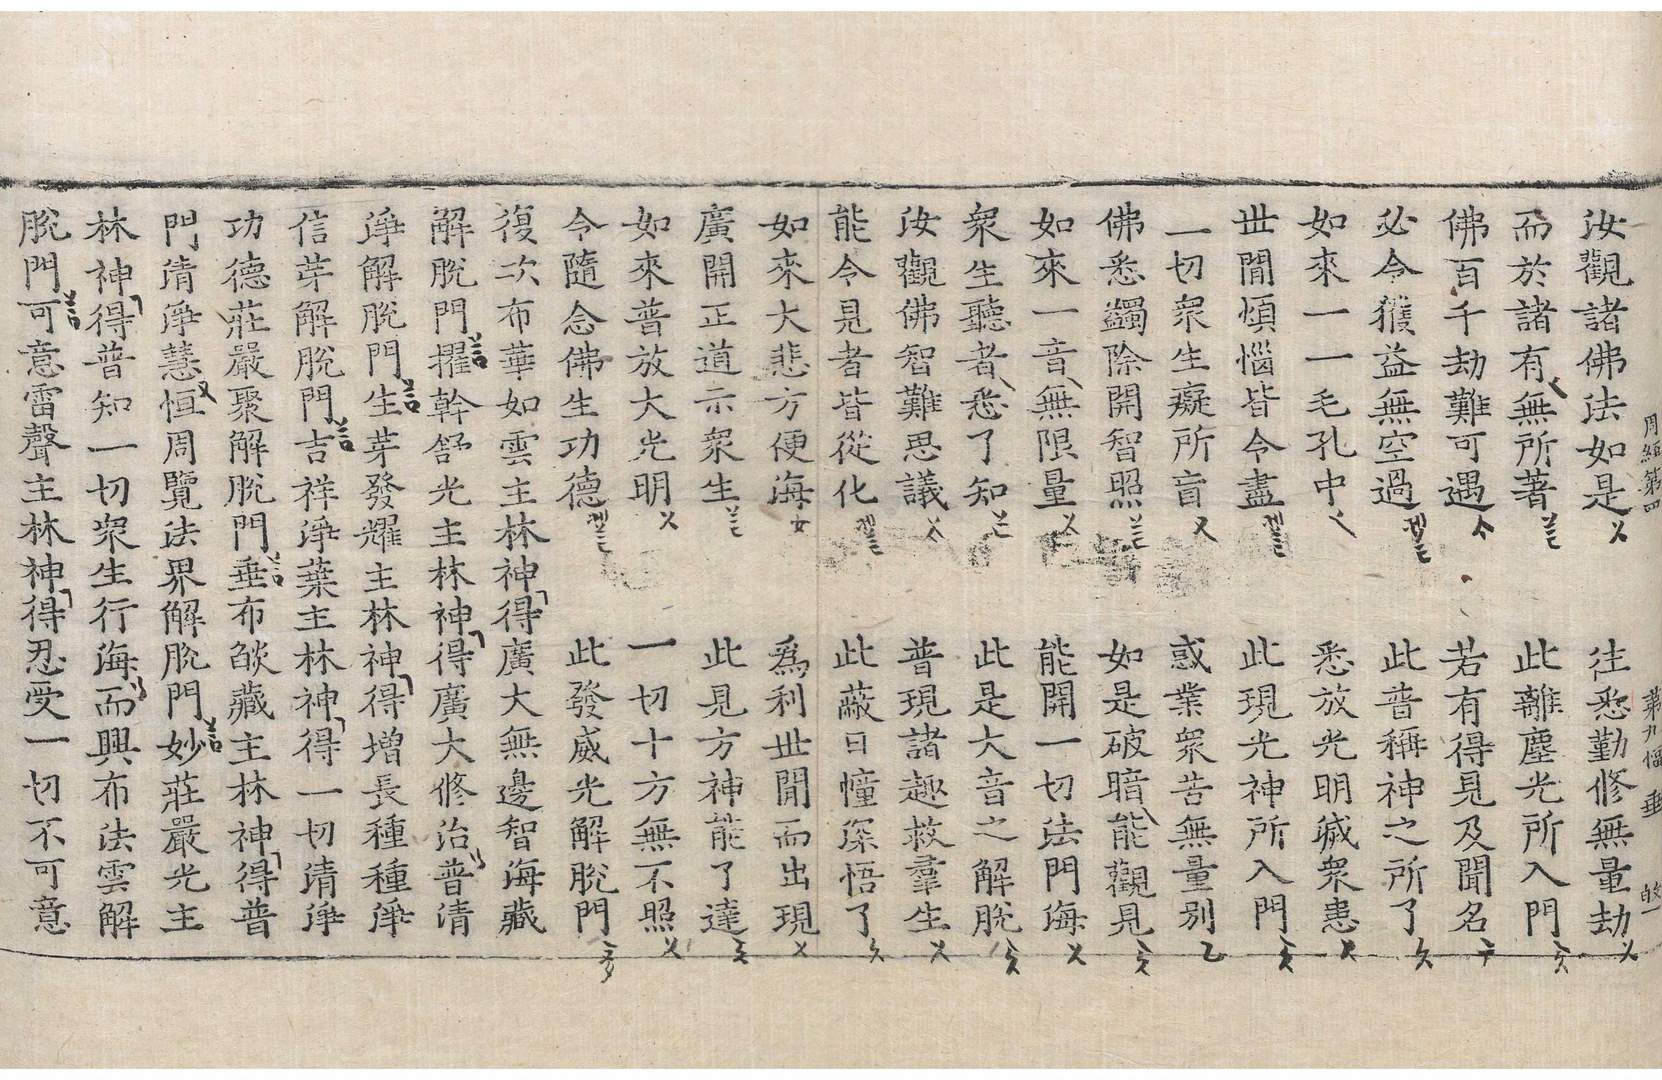 周經第四 第九幅 垂
汝觀諸佛法如是 往悉勤修無量劫
而於諸有無所著 此離塵光所入門
佛百千劫難可遇 若有得見及聞名
必令獲益無空過 此普稱神之所了
如來一一毛孔中 悉放光明滅衆患
世間煩惱皆令盡 此現光神所入門
一切衆生癡所盲 惑業衆苦無量別
佛悉蠲除開智照 如是破暗能觀見
如來一音無限量 能開一切法門海
衆生聽者悉了知 此是大音之解脫
汝觀佛智難思議 普現諸趣救羣生
能令見者皆從化 此蔽日幢深悟了
如來大悲方便海 爲利世間而出現
廣開正道示衆生 此見方神能了達
如來普放大光明 一切十方無不照
令隨念佛生功德 此發威光解脫門
復次布華如雲主林神得廣大無邊智海藏
解脫門擢幹舒光主林神得廣大修治普清
淨解脫門生芽發耀主林神得增長種種淨
信芽解脫門吉祥淨葉主林神得一切清淨
功德莊嚴聚解脫門垂布燄藏主林神得普
門清淨慧恒周覽法界解脫門妙莊嚴光主
林神得普知一切衆生行海而興布法雲解
脫門可意雷聲主林神得忍受一切不可意